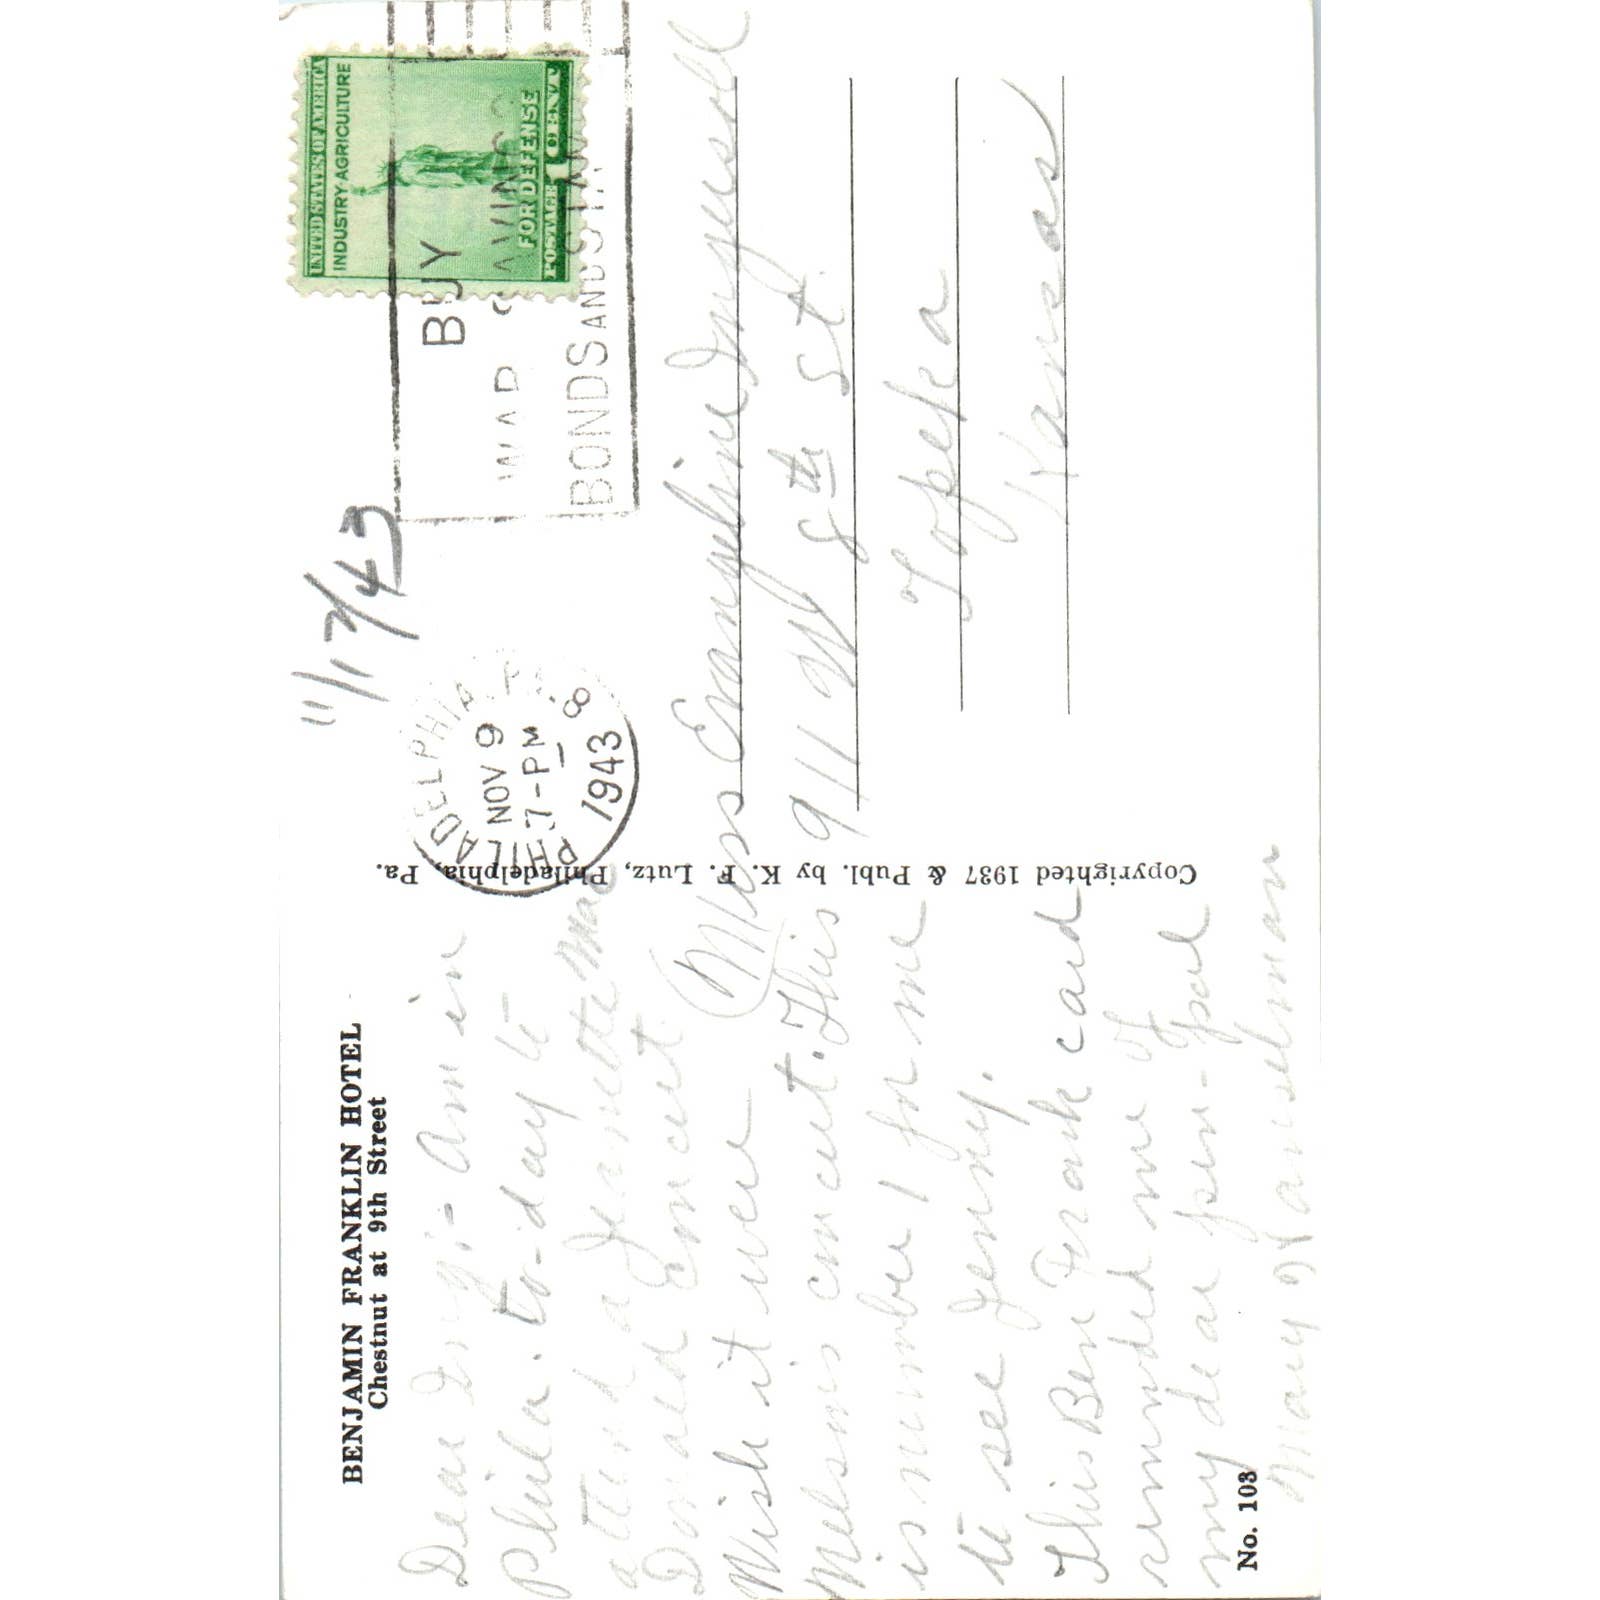 BENJAMIN FRANKLIN HOTEL
Chestnut at 9th Street
Dear Ing:- Am in
Phila. to-day to
attend a Jeanette Mac
Donald Concert
Wish it were
Nelson's concert. This
is number 1 for me
to see Jenny.
This Ben Frank card
reminded me of
my dear pen-pal
Mary
No. 103
Copyrighted 1937 & Publ. by K. F. Lutz, Philadelphia, Pa.
11/17/43
PHILADELPHIA, PA. 8
NOV 9
7-PM
1943
BUY
WAR SAVINGS
BONDS AND STAMPS
UNITED STATES OF AMERICA
INDUSTRY·AGRICULTURE
FOR DEFENSE
POSTAGE 1 CENT
Miss Evangeline Ingersoll
911 W 8th St.
Topeka
Kansas